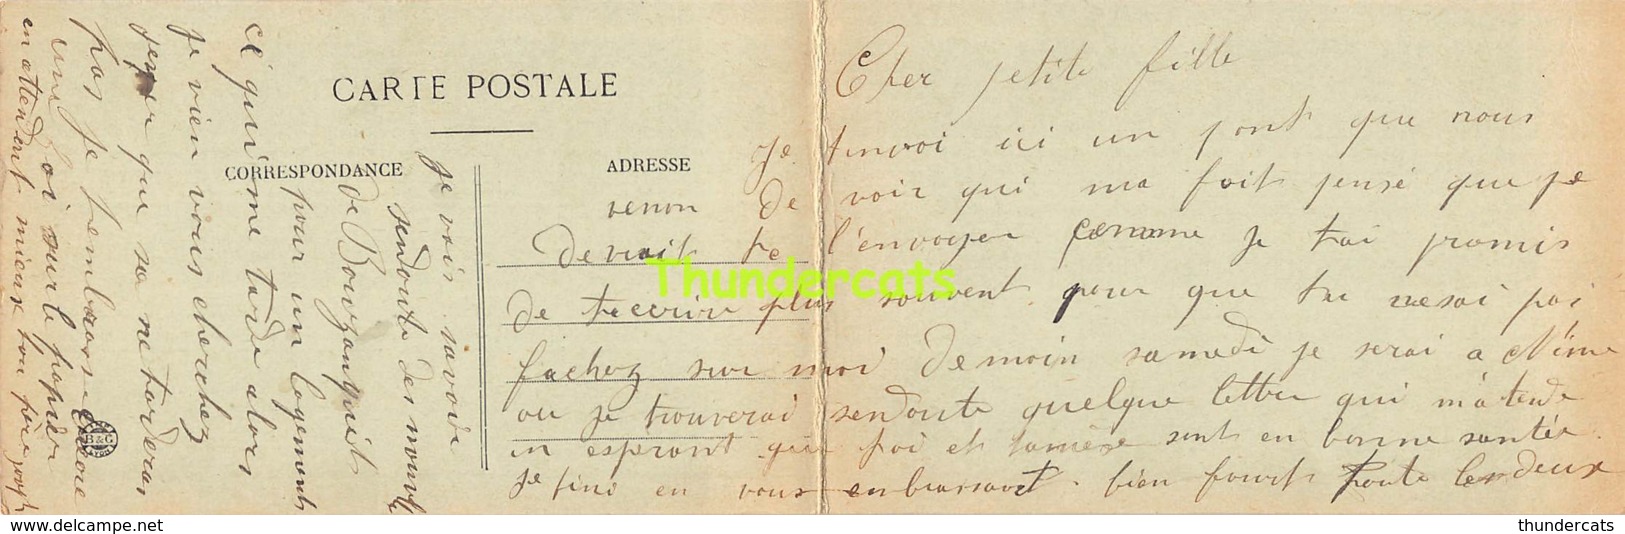 CARTE POSTALE
CORRESPONDANCE
ADRESSE
Cher petite fille
Je t'envoi ici un pont que nous
venon de voir qui ma fait pensé que je
devrait te l'envoyer comme je tai promis
de t'ecrire plus souvent pour que tu ne soi pas
fachez sur moi demain samedi je serai a Nime
ou je trouverai sendoute quelque lettre qui m'atende
en esperant que toi et ta mère sont en bonne santée.
Je fini en vous enbrassant bien fort toute les deux
je vais savoir
sendoute des nouvelle
de Bouzanquet
pour un logement
ce qui me tarde alors
je vien vous cherchez
penser que sa ne tarderas
pas je t'embrasse
toi sur le papier
en attendant mieux ton père
B&G
LYON
Thundercats
www.delcampe.net
thundercats